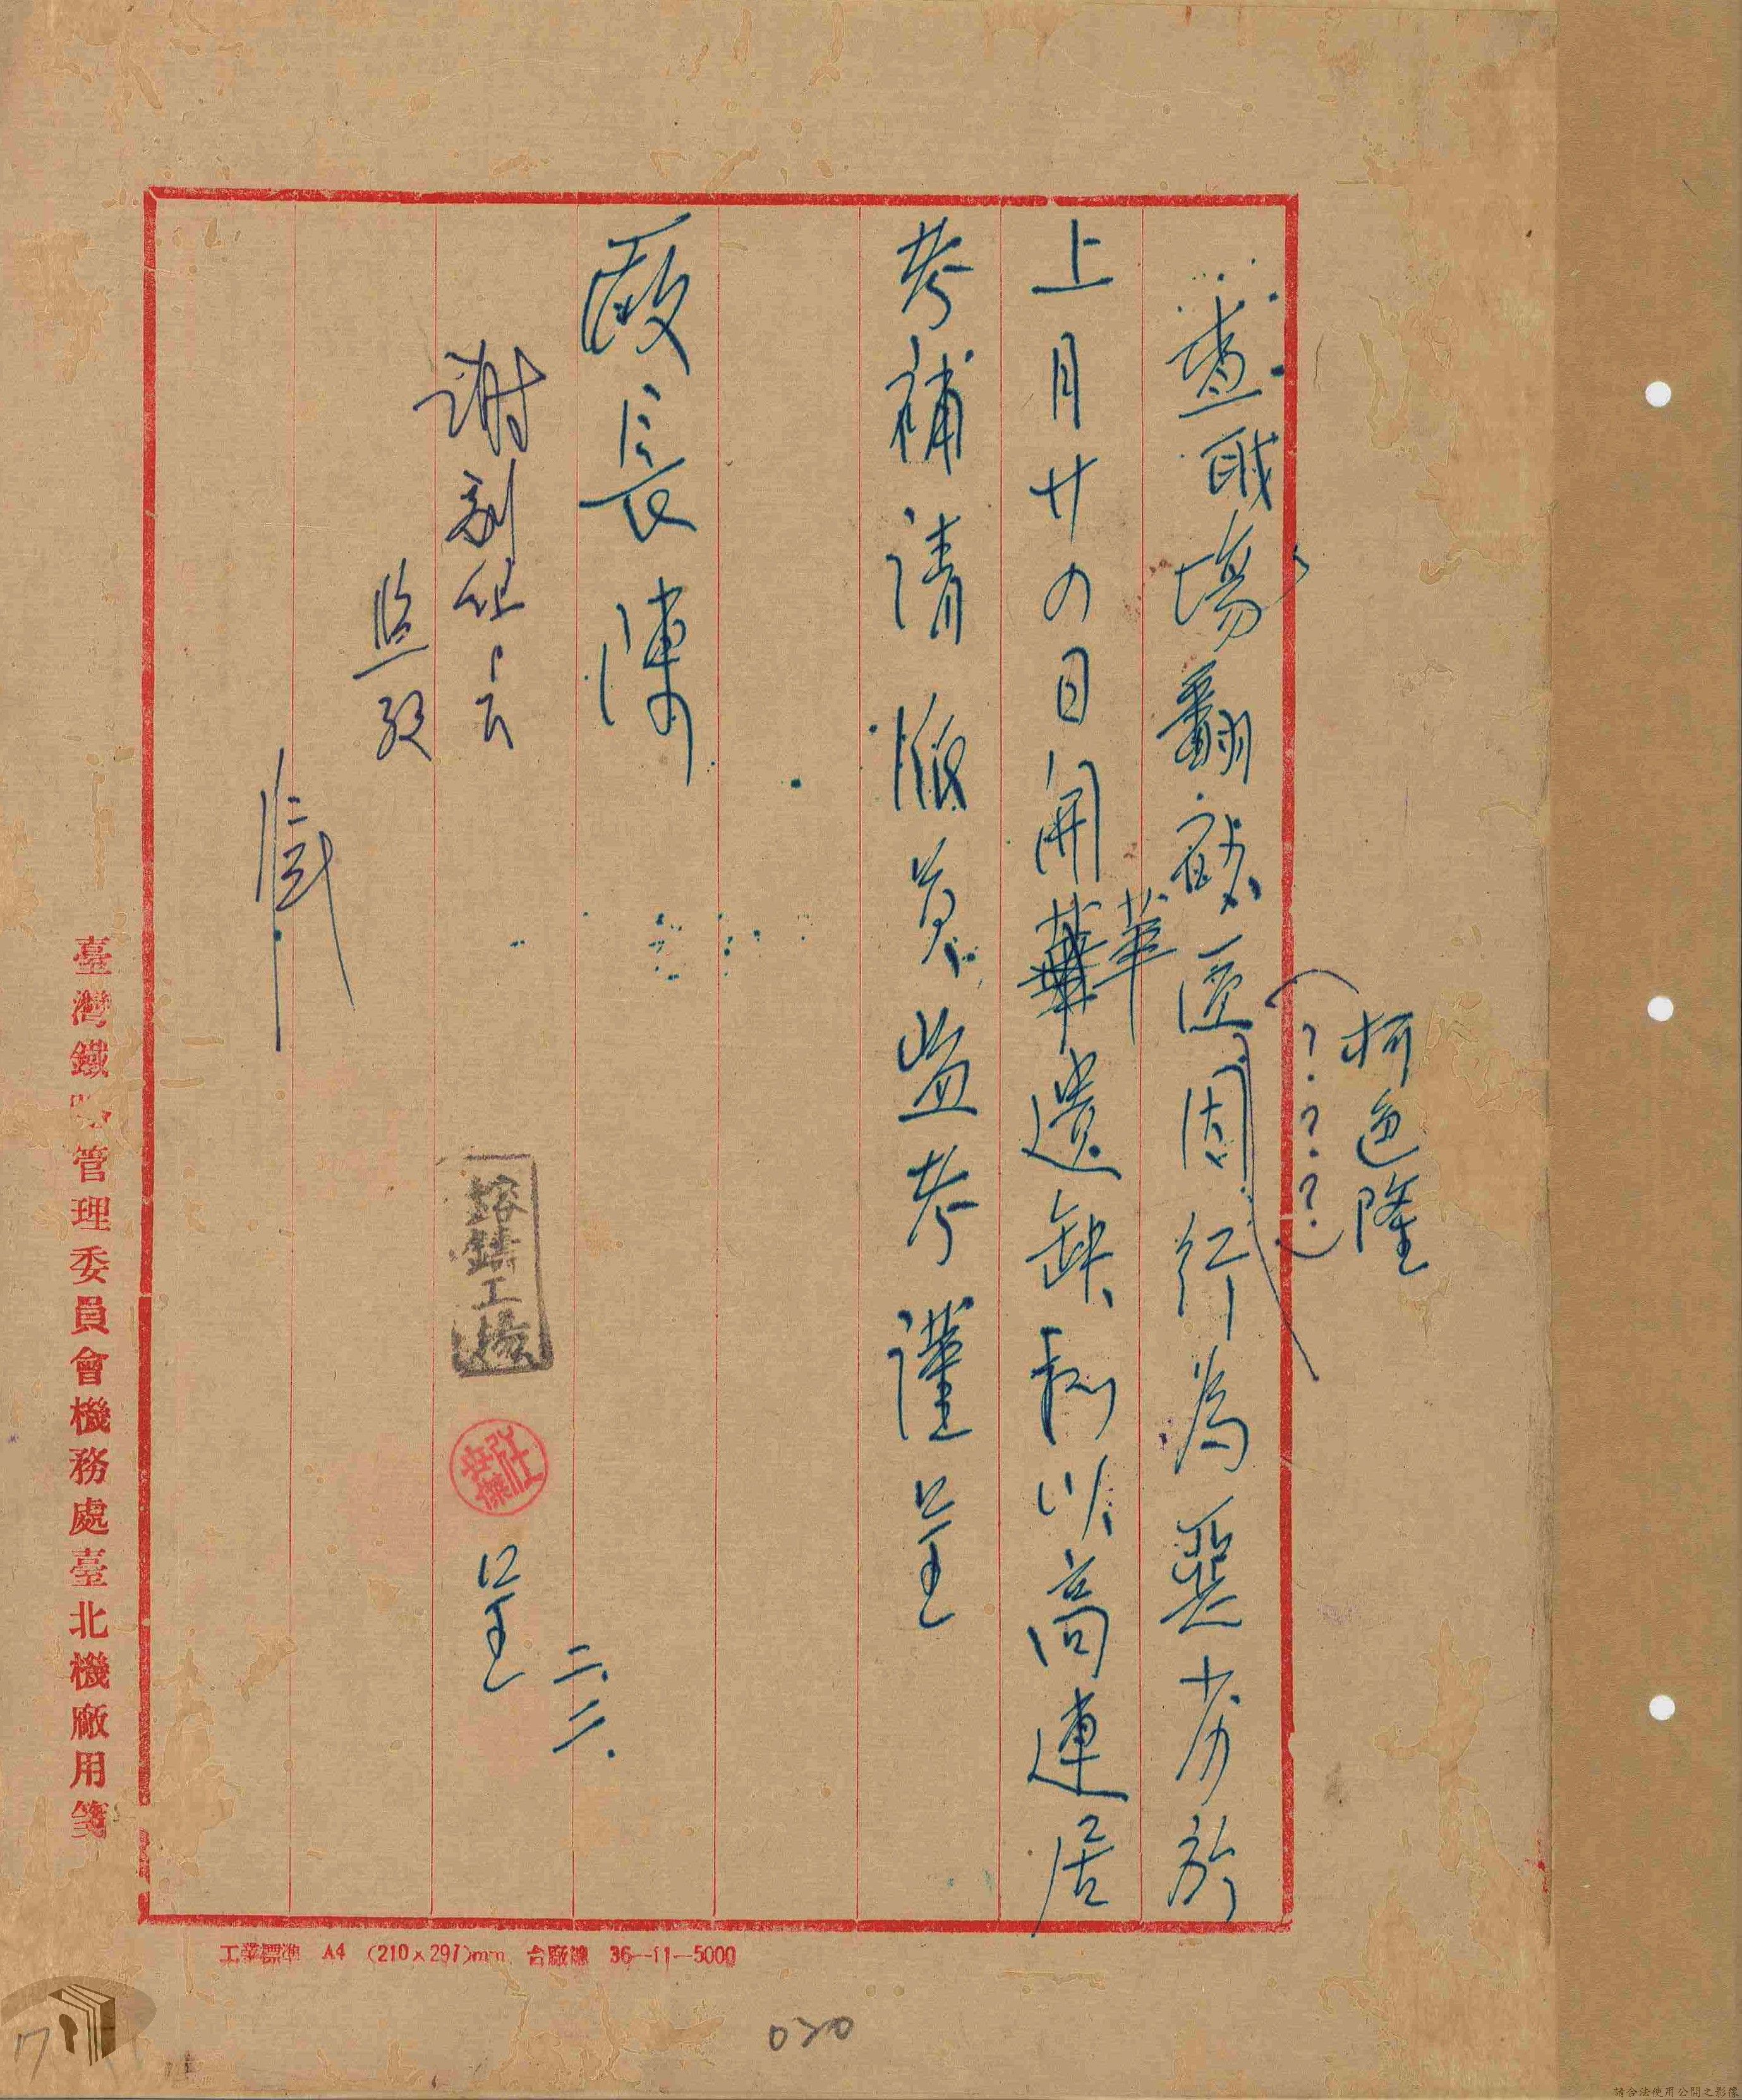 柯色隆
(？.？.？.)
查職場翻砂匠因行為惡劣於
上月廿四日開革遺缺擬以高連居
考補請派員監考謹呈
廠長陳
熔鑄工場
呈
二.二.
謝副主任
監考
臺灣鐵路管理委員會機務處臺北機廠用箋
工業標準 A4 (210×297)mm 台廠總 36--11--5000
020
請合法使用公開之影像